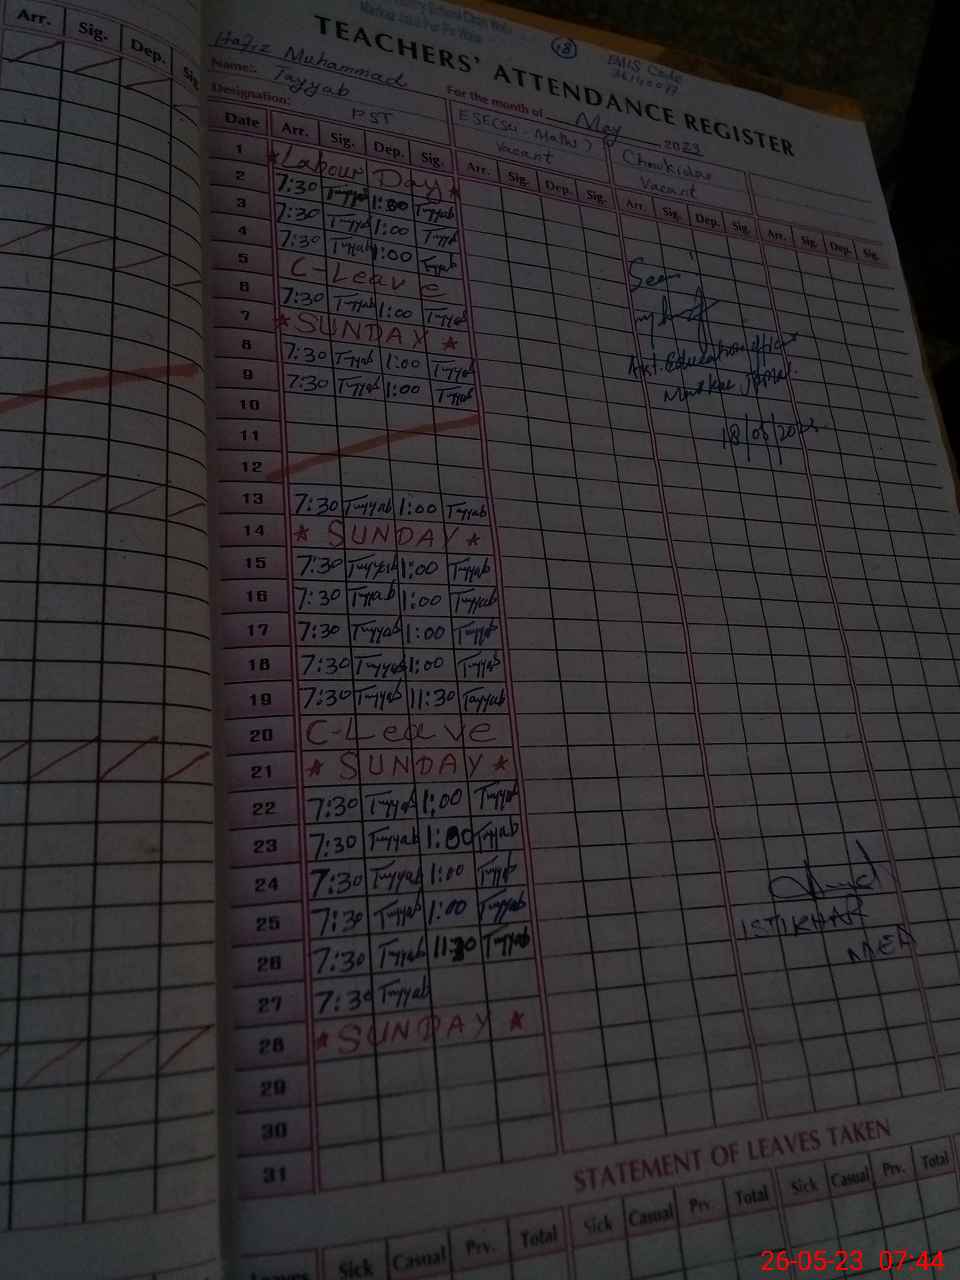 Arr. Sig. Dep. Sig
18
EMIS Code
TEACHERS' ATTENDANCE REGISTER
Name:. Hafiz Muhammad Tayyab
For the month of May 2023
Designation: PST
ESE(Sci-Maths) Vacant
Chowkidar Vacant
Date Arr. Sig. Dep. Sig. Arr. Sig. Dep. Sig. Arr. Sig. Dep. Sig. Arr. Sig. Dep. Sig.
1 * Labour Day *
2 7:30 Tayyab 1:30 Tayyab
3 7:30 Tayyab 1:00 Tayyab
4 7:30 Tayyab 1:00 Tayyab
5 C-Leave
6 7:30 Tayyab 1:00 Tayyab
7 * SUNDAY *
8 7:30 Tayyab 1:00 Tayyab
9 7:30 Tayyab 1:00 Tayyab
10
11
12
13 7:30 Tayyab 1:00 Tayyab
14 * SUNDAY *
15 7:30 Tayyab 1:00 Tayyab
16 7:30 Tayyab 1:00 Tayyab
17 7:30 Tayyab 1:00 Tayyab
18 7:30 Tayyab 1:00 Tayyab
19 7:30 Tayyab 11:30 Tayyab
20 C-Leave
21 * SUNDAY *
22 7:30 Tayyab 1:00 Tayyab
23 7:30 Tayyab 1:00 Tayyab
24 7:30 Tayyab 1:00 Tayyab
25 7:30 Tayyab 1:00 Tayyab
26 7:30 Tayyab 11:30 Tayyab
27 7:30 Tayyab
28 * SUNDAY *
29
30
31
Seen
Asst. Education Officer
Markaz
18/05/2023
ISTIKHAR
MEA
STATEMENT OF LEAVES TAKEN
Leaves Sick Casual Prv. Total Sick Casual Prv. Total Sick Casual Prv. Total
26-05-23 07:44